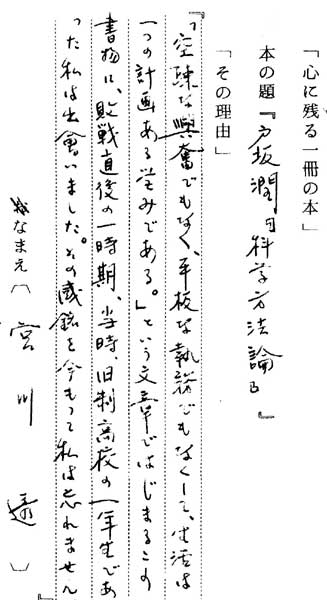 「心に残る一冊の本」
本の題『戸坂潤『科学方法論』』
「その理由」
『「空疎な興奮でもなく、平板な執務でもなくして、生活は
一つの計画ある営みである。」という文章ではじまるこの
書物に、敗戦直後の一時期、当時、旧制高校の一年生であ
った私は出會いました。その感銘を今もって私は忘れません
おなまえ〔宮川 透〕』